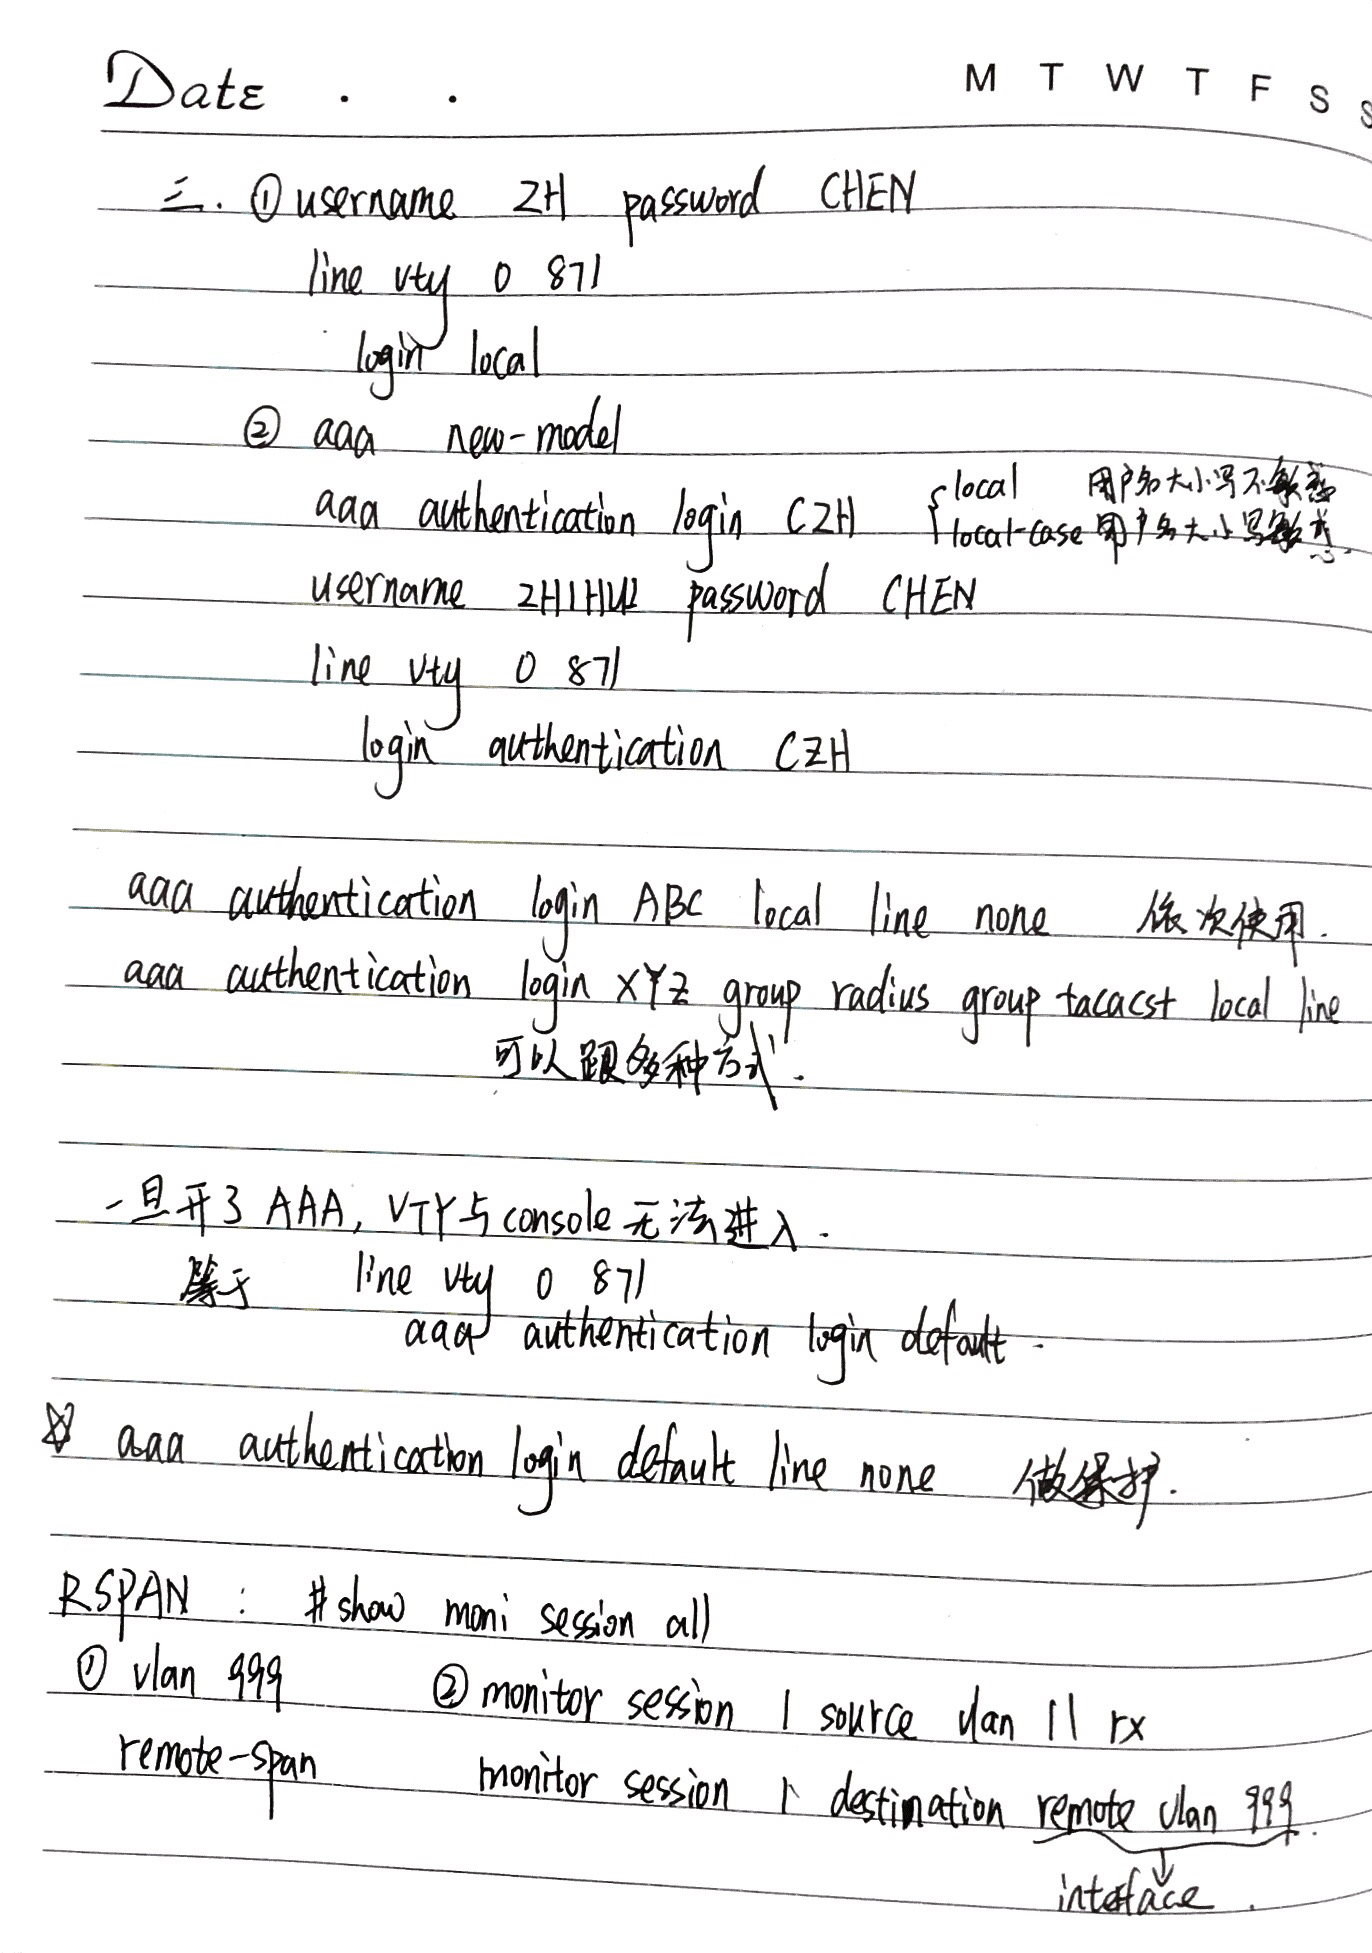 Date . .
M T W T F S S
三. ① username ZH password CHEN
line vty 0 871
login local
② aaa new-model
aaa authentication login CZH { local 用户名大小写不敏感
local-case 用户名大小写敏感.
username ZHIHUI password CHEN
line vty 0 871
login authentication CZH
aaa authentication login ABC local line none 依次使用.
aaa authentication login XYZ group radius group tacacst local line
可以跟多种方式.
一旦开了AAA, VTY与console无法进入.
等于 line vty 0 871
aaa authentication login default.
☆ aaa authentication login default line none 做保护.
RSPAN : #show moni session all
① vlan 999 ② monitor session 1 source vlan 11 rx
remote-span monitor session 1 destination remote vlan 999.
↓
interface.